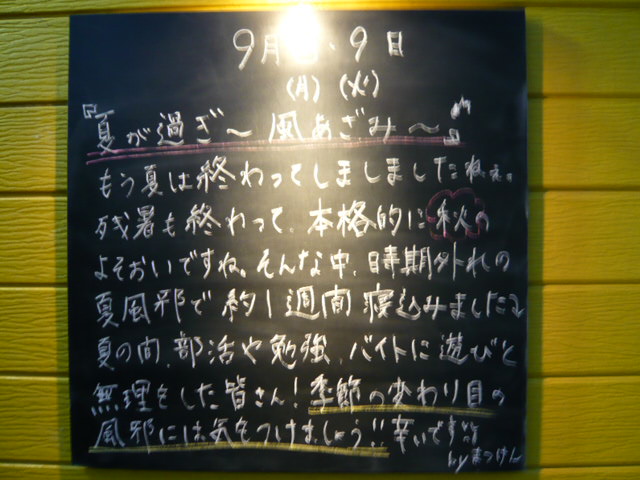 9月 ・9日
(月) (火)
『夏が過ぎ〜 風あざみ〜♪』
もう夏は終わってしましましたねぇ。
残暑も終わって、本格的に秋の
よそおいですね。そんな中、時期外れの
夏風邪で約1週間寝込みました
夏の間、部活や勉強、バイトに遊びと
無理をした皆さん!季節の変わり目の
風邪には気をつけましょう!!辛いです
by まつけん